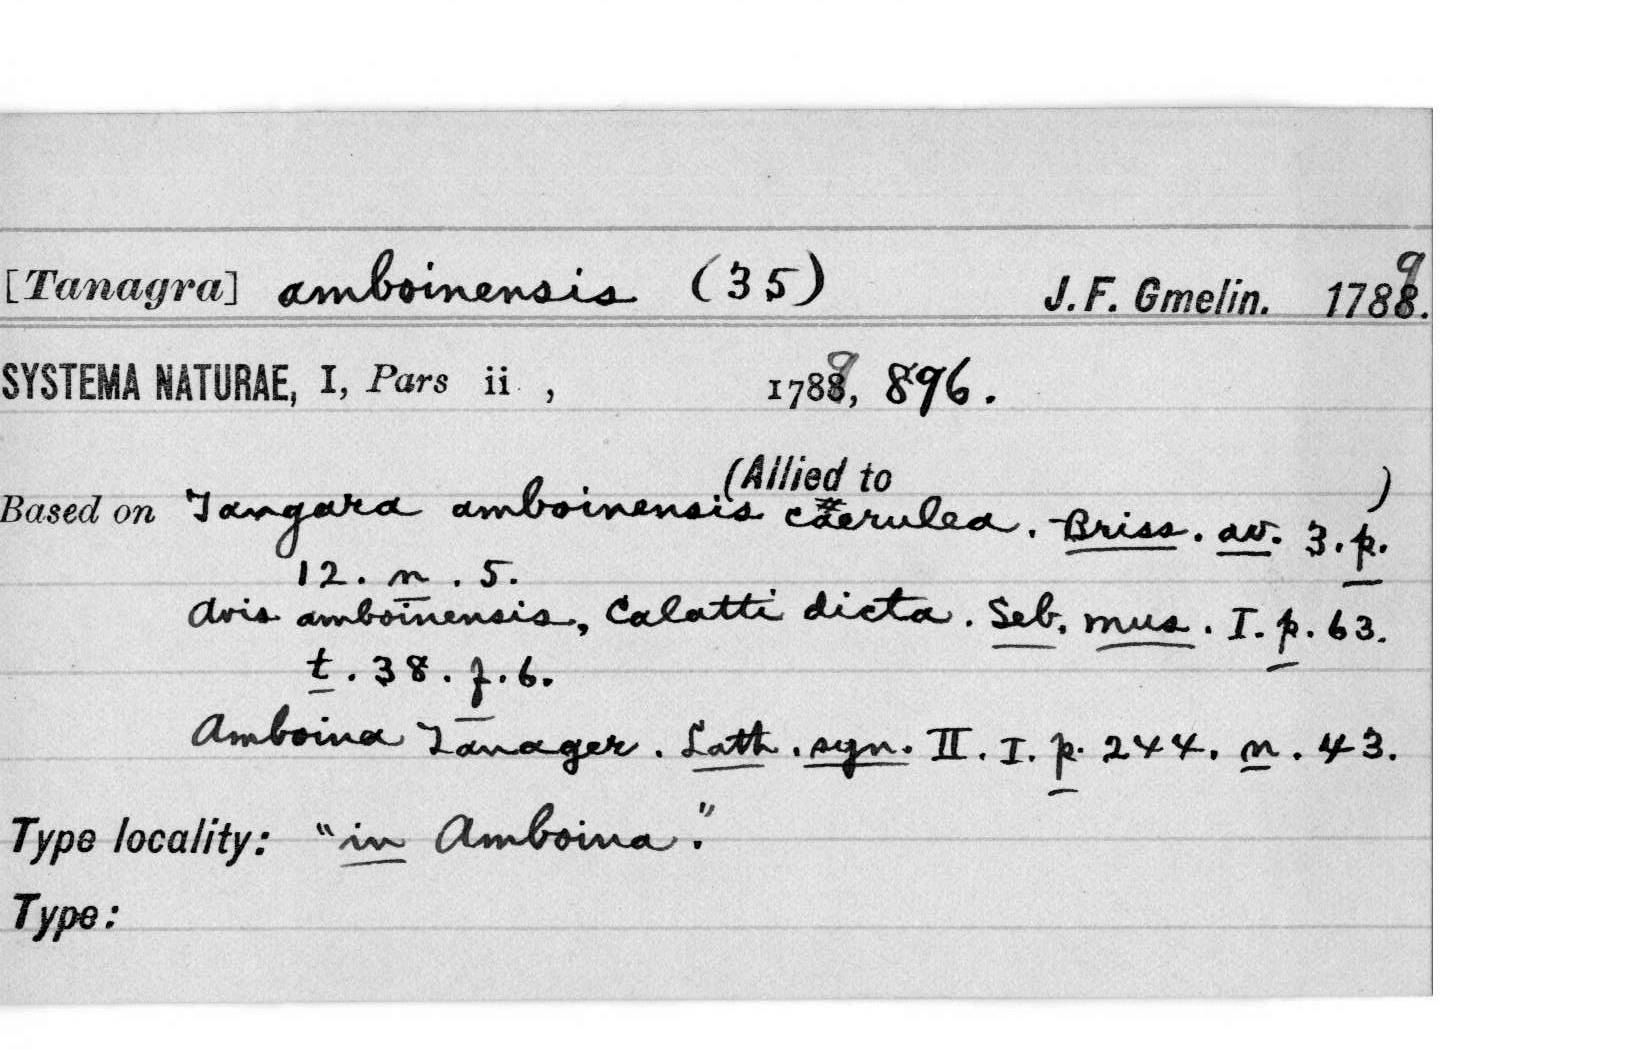 [Tanagra] amboinensis (35) J. F. Gmelin. 1789.
SYSTEMA NATURAE, I, Pars ii , 1789, 896.
(Allied to )
Based on Tangara amboinensis caerulea. Briss. av. 3. p.
12. n. 5.
Avis amboinensis, Calatti dicta. Seb. mus. I. p. 63.
t. 38. f. 6.
Amboina Tanager. Lath. syn. II. I. p. 244. n. 43.
Type locality: "in Amboina."
Type: